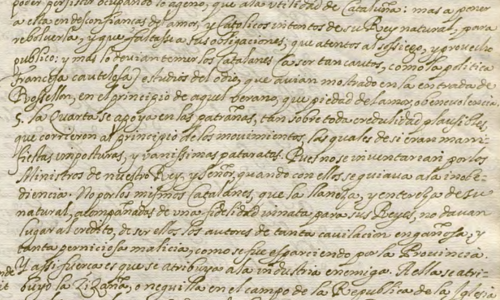 poder persistir ocupando lo ageno, que a la utilidad de Cataluña: mas a poner
a esta en desconfianças del amor, y Catolicos intentos de su Rey natural, para
rebolverla, y que faltasse a sus obligaciones, que atentos al sosiego, y provecho
publico; y mas lo devian temer los Catalanes (a ser tan cautos, como la politica
francesa cautelosa) estudios del odio, que avian mostrado en la entrada de
Rossellon, en el principio de aquel verano, que piedad del amor, o benevolencia
5. la Quarta se apoya en las patrañas, tan sobre toda credulidad plausibles,
que corrieron al principio de los movimientos, las quales de si eran mani-
fiestas imposturas, y vanissimas pataratas. Pues no se inventarian por los
Ministros de nuestro Rey, y Señor, quando con ellos se guiava a la inobe-
diencia. No por los mismos Catalanes, que la llaneza, y entereza de su
natural, acompañadas de una fidelidad innata para sus Reyes, no davan
lugar al credito, de ser ellos los autores de tanta cavilacion engañosa, y
tanta perniciosa malicia, como se fue esparciendo por la Provincia.
Y assi fuerza es que se atribuya a la industria enemiga. A ella se atri-
buyo la Zizaña, o neguilla en el campo de la Republica de la Iglesia